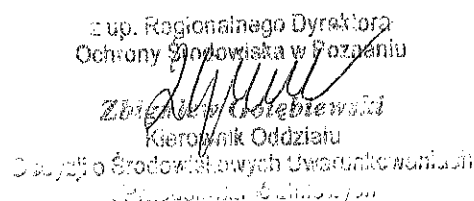 z up. Regionalnego Dyrektora
Ochrony Środowiska w Poznaniu
Zbigniew Gołębiewski
Kierownik Oddziału
Decyzji o Środowiskowych Uwarunkowaniach